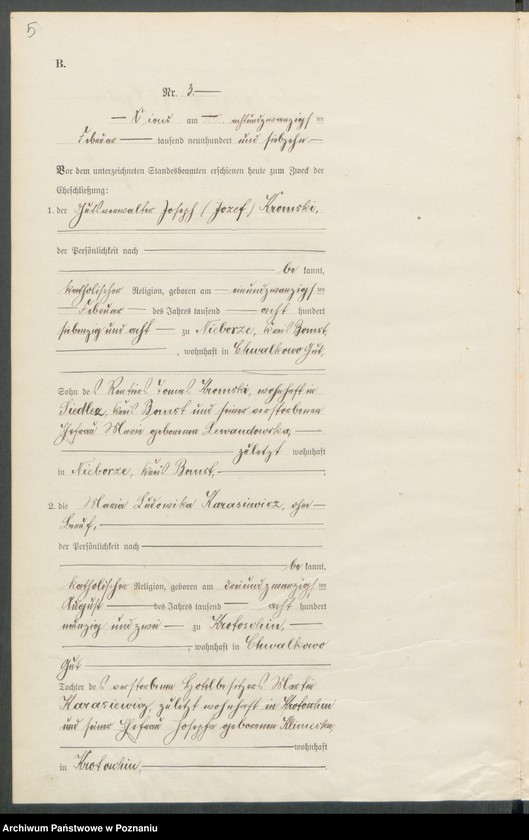 5
B.
Nr. 3.
Xions am achtundzwanzigsten
Februar tausend neunhundert und siebzehn
Vor dem unterzeichneten Standesbeamten erschienen heute zum Zweck der
Eheschließung:
1. der Gutsverwalter Joseph (Jozef) Kromski,
der Persönlichkeit nach
be kannt,
katholischer Religion, geboren am neunundzwanzigsten
Februar des Jahres tausend acht hundert
siebenzig und acht zu Nieborze, Kreis Bomst,
, wohnhaft in Chwalkowo Gut,
Sohn des Rentiers Tomas Kromski, wohnhaft in
Siedlez, Kreis Bomst und seiner verstorbenen
Ehefrau Maria geborenen Lewandowska,
zuletzt wohnhaft
in Nieborze, Kreis Bomst,
2. die Maria Ludowika Karasiewicz, ohne
Beruf,
der Persönlichkeit nach
be kannt,
katholischer Religion, geboren am dreiundzwanzigsten
August des Jahres tausend acht hundert
neunzig und zwei zu Krotoschin,
, wohnhaft in Chwalkowo
Gut
Tochter des verstorbenen Hotelbesitzers Martin
Karasiewicz, zuletzt wohnhaft in Krotoschin
und seiner Ehefrau Josepha geborenen Klimecka,
wohnhaft
in Krotoschin,
Archiwum Państwowe w Poznaniu